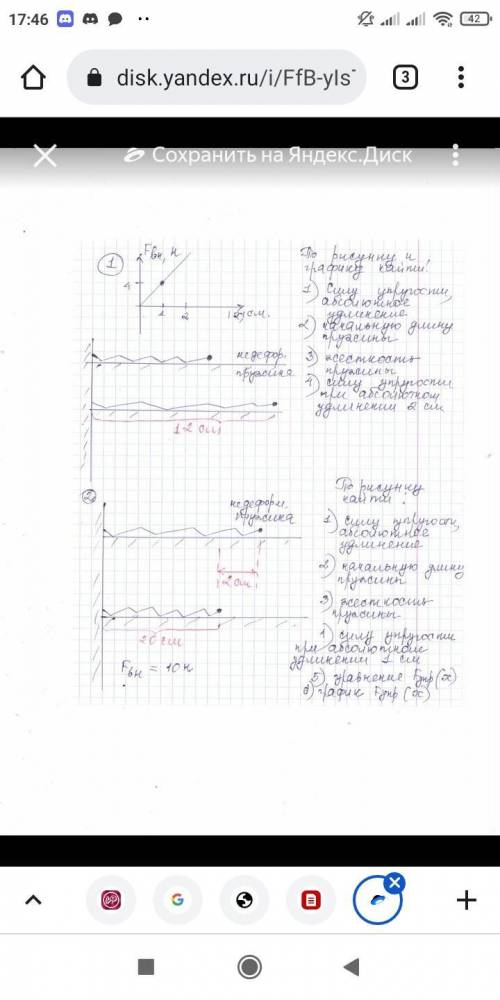 17:46
42
disk.yandex.ru/i/FfB-yIsT
3
Сохранить на Яндекс.Диск
1
Fвн, н
4
1 2 см.
По рисунку и
графику найти:
1) силу упругости,
абсолютное
удлинение
2) начальную длину
пружины
3) жесткость
пружины
4) силу упругости
при абсолютном
удлинении 2 см
недефор.
пружина
12 см
2
По рисунку
найти:
недеформ.
пружина
1) силу упругости,
абсолютное
удлинение
2) начальную длину
пружины
3) жесткость
пружины
2 см
20 см
1) силу упругости
при абсолютном
удлинении 1 см
Fвн = 10н
5) уравнение Fупр(x)
6) график Fупр(x)